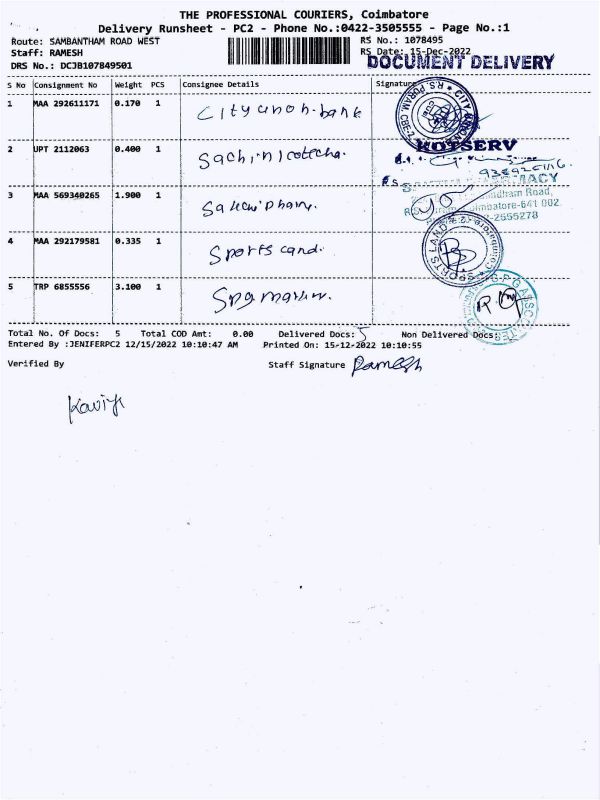 THE PROFESSIONAL COURIERS, Coimbatore
Delivery Runsheet - PC2 - Phone No.:0422-3505555 - Page No.:1
Route: SAMBANTHAM ROAD WEST RS No.: 1078495
Staff: RAMESH RS Date: 15-Dec-2022
DOCUMENT DELIVERY
DRS No.: DCJB107849501
S No Consignment No Weight PCS Consignee Details Signature
1 MAA 292611171 0.170 1 City union bank
2 UPT 2112063 0.400 1 Sachin kotecha.
KOTSERV
3 MAA 569340265 1.900 1
4 MAA 292179581 0.335 1 Sports land.
5 TRP 6855556 3.100 1
Total No. Of Docs: 5 Total COD Amt: 0.00 Delivered Docs: 5 Non Delivered Docs:
Entered By :JENIFERPC2 12/15/2022 10:10:47 AM Printed On: 15-12-2022 10:10:55
Verified By Staff Signature Ramesh